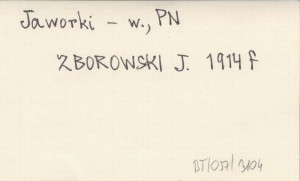 Jaworki - w., PN
ZBOROWSKI J. 1914 f
BT/057/3104